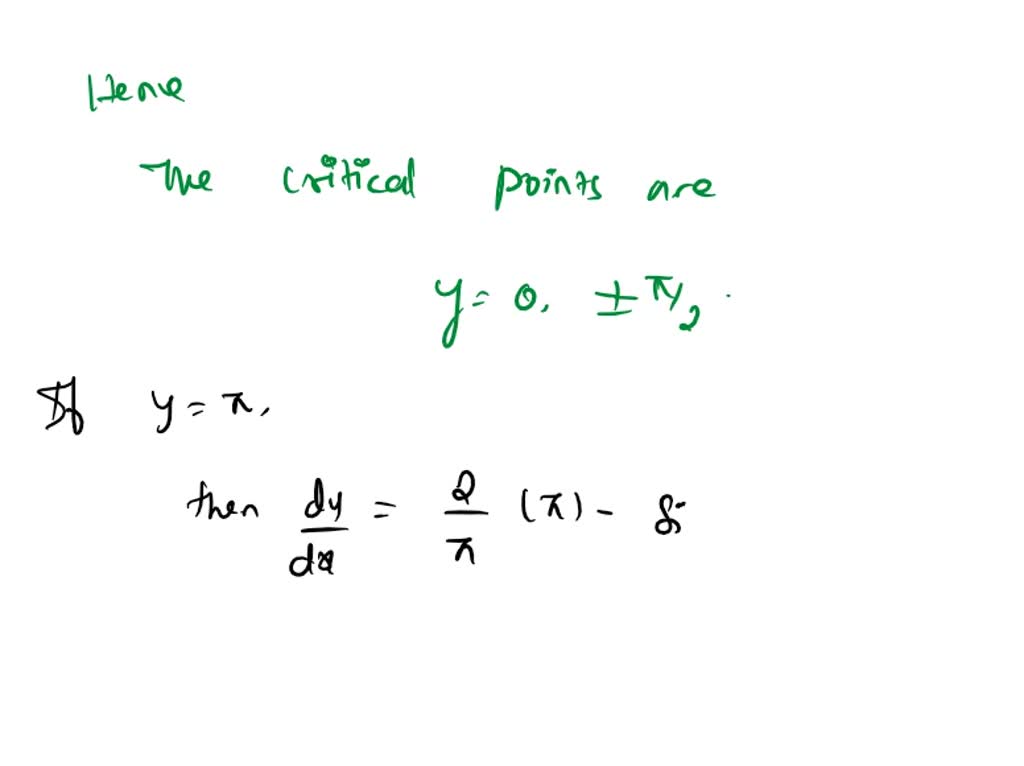 Hence
The critical points are
y = 0, ± π/2 .
If y = π,
then dy/dx = 2/π (π) -